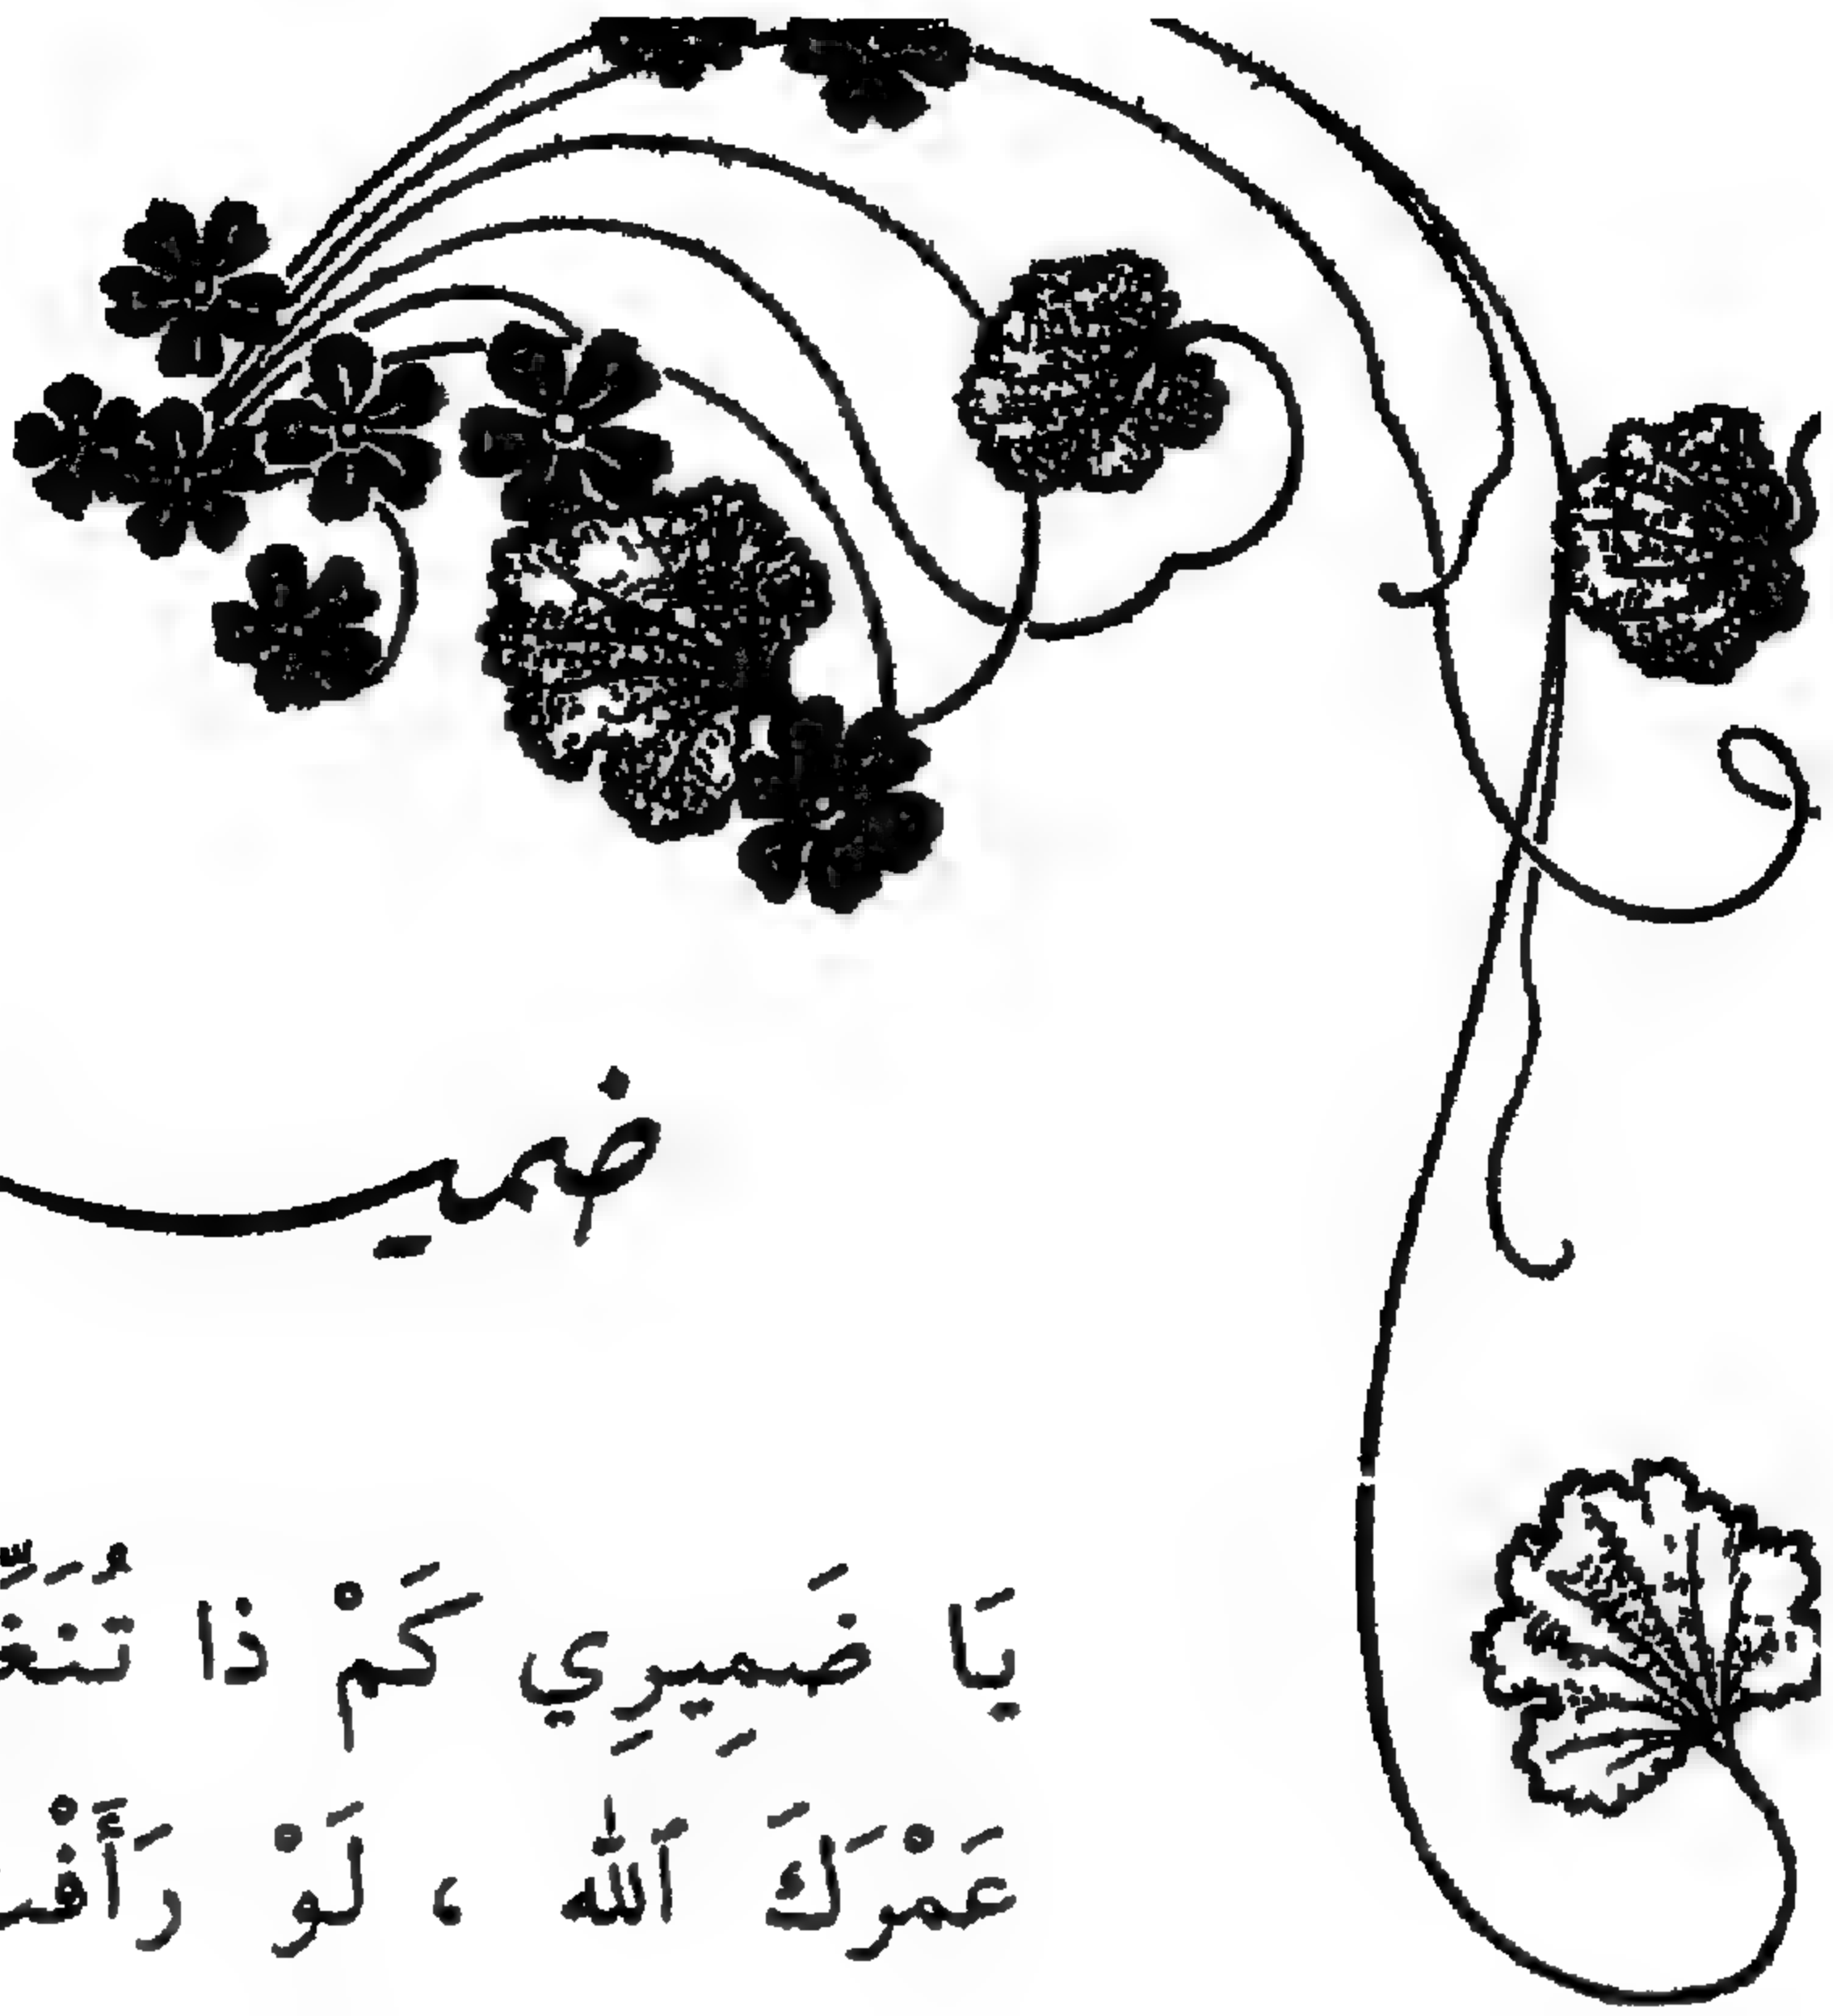 ضمير
يَا ضَمِيرِي كَمْ ذا
عَمْرَكَ اَللّٰه ، لَوْ